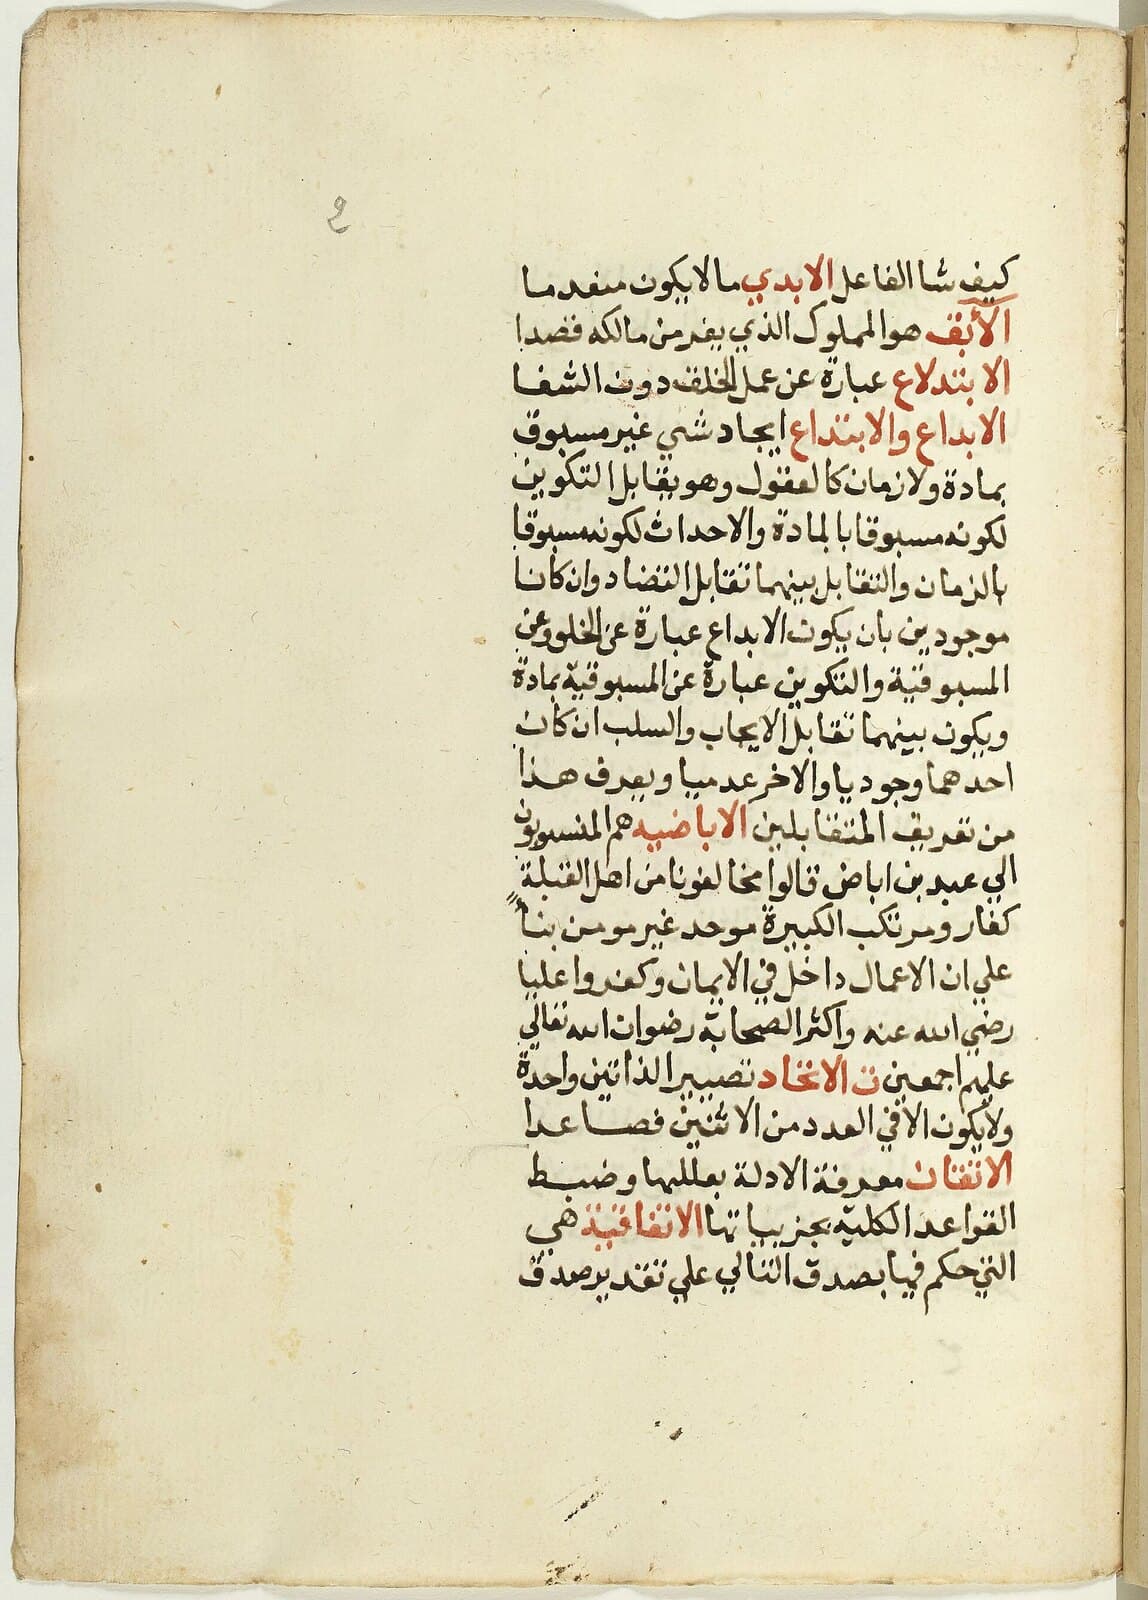 ٩
كيف شا الفاعل الابدي ما لا يكون منعدما
الآبق هو المملوك الذي يفر من مالكه قصدا
الابتدلاع عبارة عن عمل الخلف دون الشفا
الابداع والابتداع ايجاد شي غير مسبوق
بمادة ولا زمان كالعقول وهو يقابل التكوين
لكونه مسبوقا بالمادة والاحداث لكونه مسبوقا
بالزمان والتقابل بينهما تقابل التضاد وان كانا
موجودين بان يكون الابداع عبارة عن الخلو عن
المسبوقية والتكوين عبارة عن المسبوقية بمادة
ويكون بينهما تقابل الايجاب والسلب ان كان
احدهما وجوديا والاخر عدميا ويعرف هذا
من تعريف المتقابلين الاباضيه هم المنسوبون
الي عبد بن اباض قالوا مخالفونا من اهل القبلة
كفار ومرتكب الكبيرة موحد غير مومن بناً
علي ان الاعمال داخل في الايمان وكفروا عليا
رضي الله عنه واكثر الصحابة رضوان الله تعالي
عليهم اجمعين ت الاتحاد تصيير الذاتين واحدة
ولا يكون الا في العدد من الاثنين فصاعدا
الاتقان معرفة الادلة بعللها وضبط
القواعد الكلية بجزيياتها الاتفاقية هي
التي حكم فيها بصدق التالي علي تقدير صدق